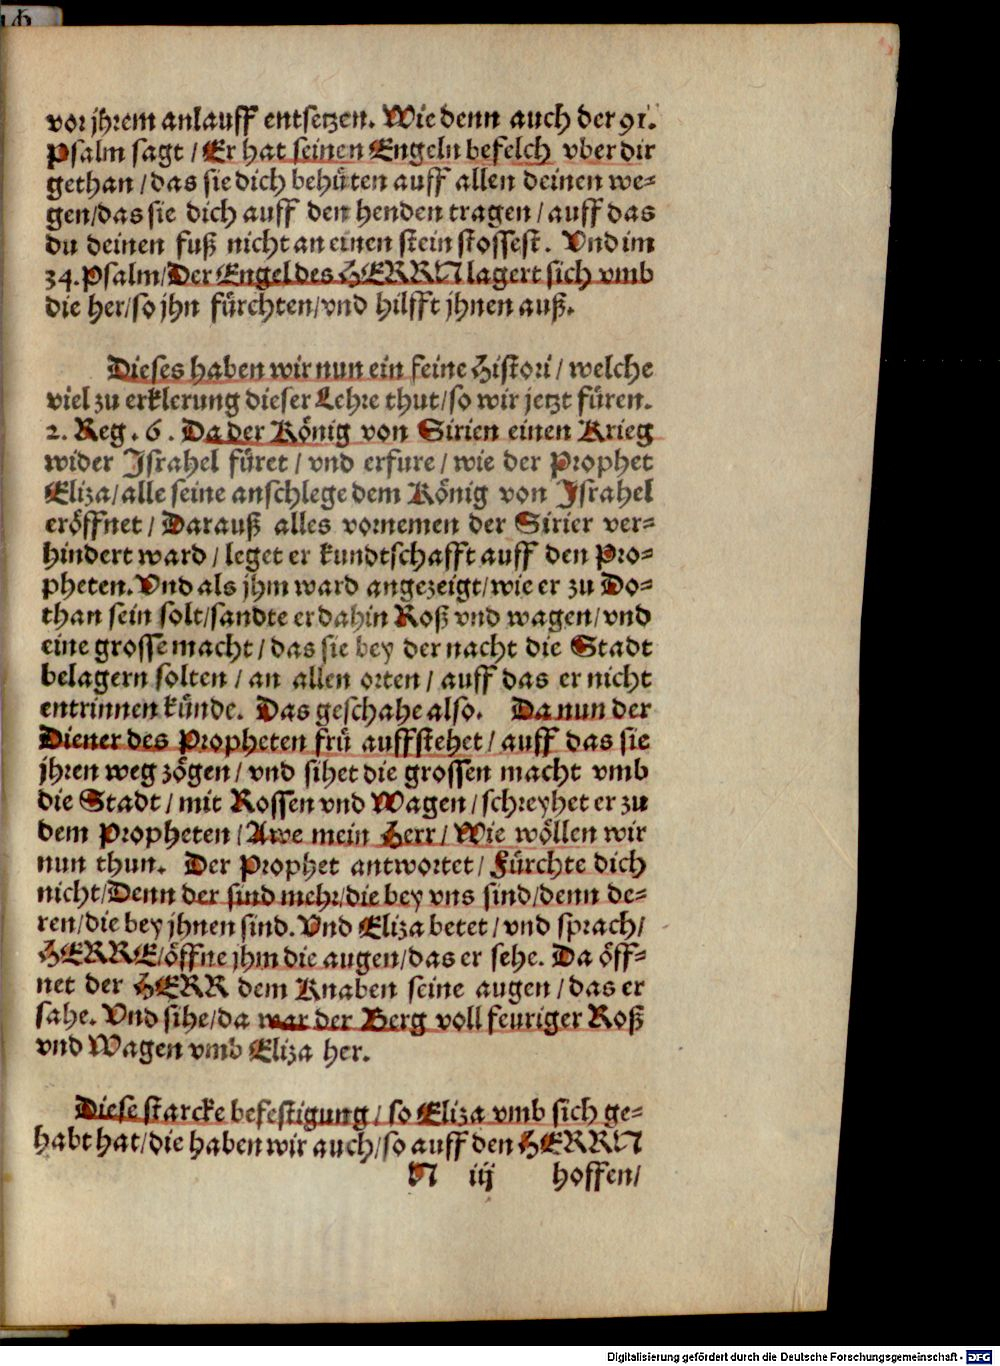 vor jhrem anlauff entsetzen. Wie denn auch der 91.
Psalm sagt / Er hat seinen Engeln befelch vber dir
gethan / das sie dich behüten auff allen deinen we-
gen/das sie dich auff den henden tragen / auff das
du deinen fuß nicht an einen stein stossest. Vnd im
34. Psalm/Der Engel des HERRN lagert sich vmb
die her/so jhn fürchten/vnd hilfft jhnen auß.
Dieses haben wir nun ein feine Histori / welche
viel zu erklerung dieser Lehre thut/so wir jetzt füren.
2. Reg. 6. Da der König von Sirien einen Krieg
wider Israhel füret / vnd erfure / wie der Prophet
Eliza/alle seine anschlege dem König von Israhel
eröffnet / Darauß alles vornemen der Sirier ver-
hindert ward / leget er kundtschafft auff den Pro-
pheten. Vnd als jhm ward angezeigt/wie er zu Do-
than sein solt/sandte er dahin Roß vnd wagen/vnd
eine grosse macht / das sie bey der nacht die Stadt
belagern solten / an allen orten / auff das er nicht
entrinnen künde. Das geschahe also. Da nun der
Diener des Propheten frü auffstehet / auff das sie
jhren weg zögen / vnd sihet die grossen macht vmb
die Stadt / mit Rossen vnd Wagen / schreyhet er zu
dem Propheten / Awe mein Herr / Wie wöllen wir
nun thun. Der Prophet antwortet / Fürchte dich
nicht/Denn der sind mehr/die bey vns sind/denn de-
ren/die bey jhnen sind. Vnd Eliza betet / vnd sprach/
HERRE/öffne jhm die augen/das er sehe. Da öff-
net der HERR dem Knaben seine augen / das er
sahe. Vnd sihe/da war der Berg voll feuriger Roß
vnd Wagen vmb Eliza her.
Diese starcke befestigung / so Eliza vmb sich ge-
habt hat/die haben wir auch/so auff den HERRN
N iij hoffen/
Digitalisierung gefördert durch die Deutsche Forschungsgemeinschaft - DFG